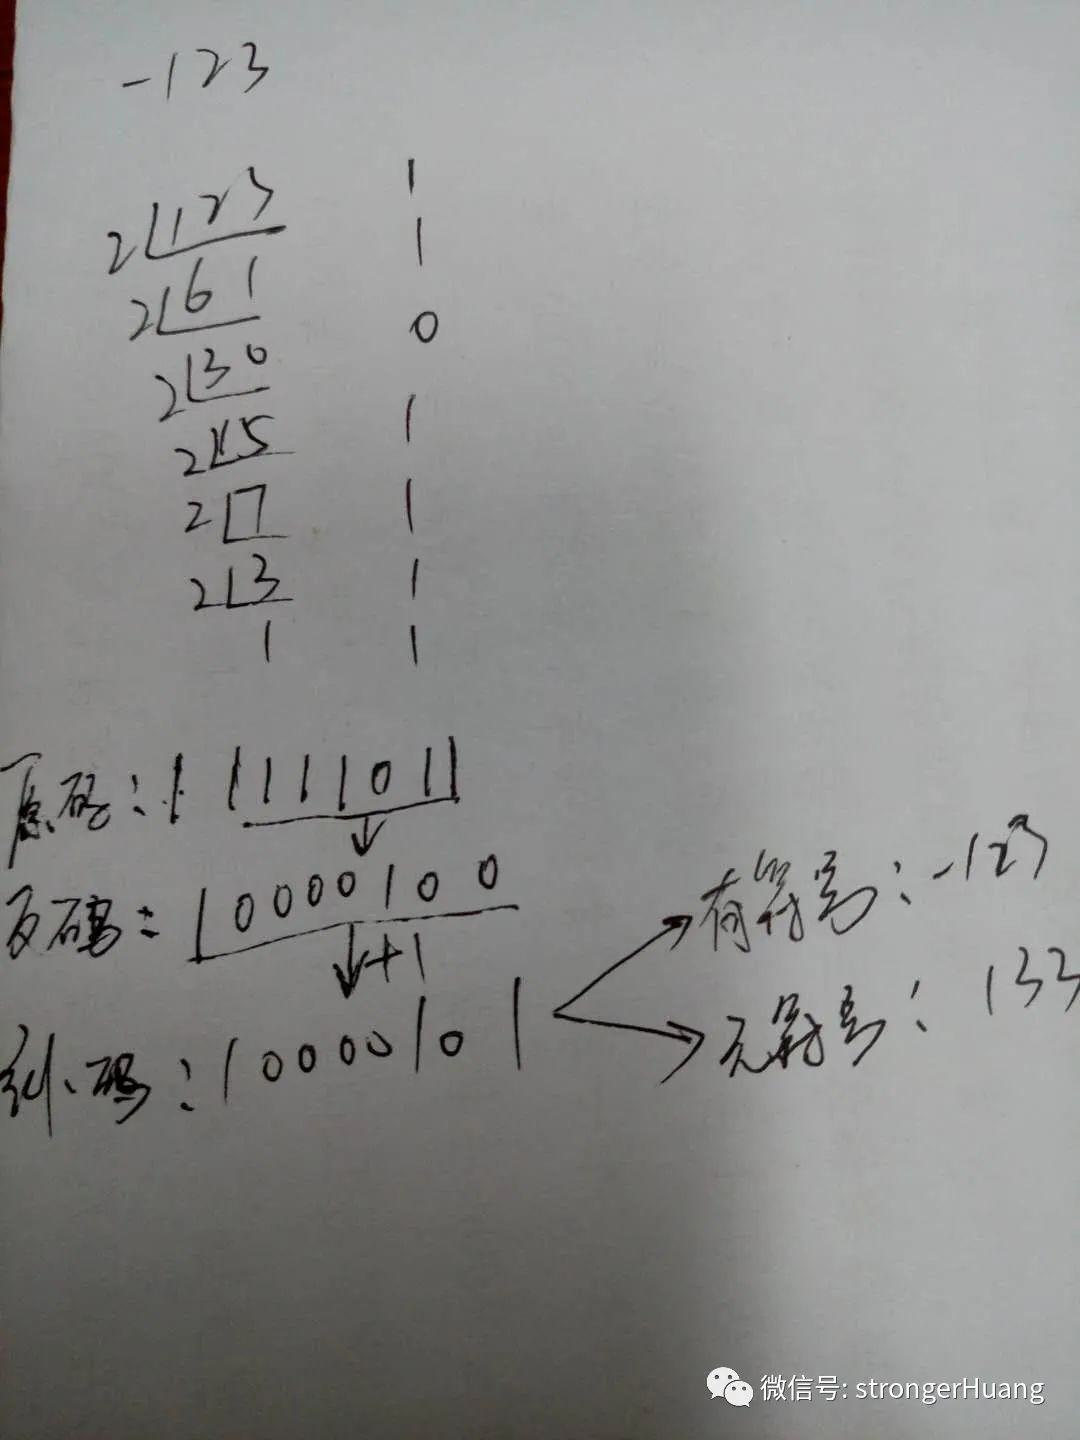 -123
2 123 1
2 61 1
2 30 0
2 15 1
2 7 1
2 3 1
1 1
原码: 1 1111011
反码: 10000100
+1
补码: 10000101
有符号: -123
无符号: 133
微信号: strongerHuang